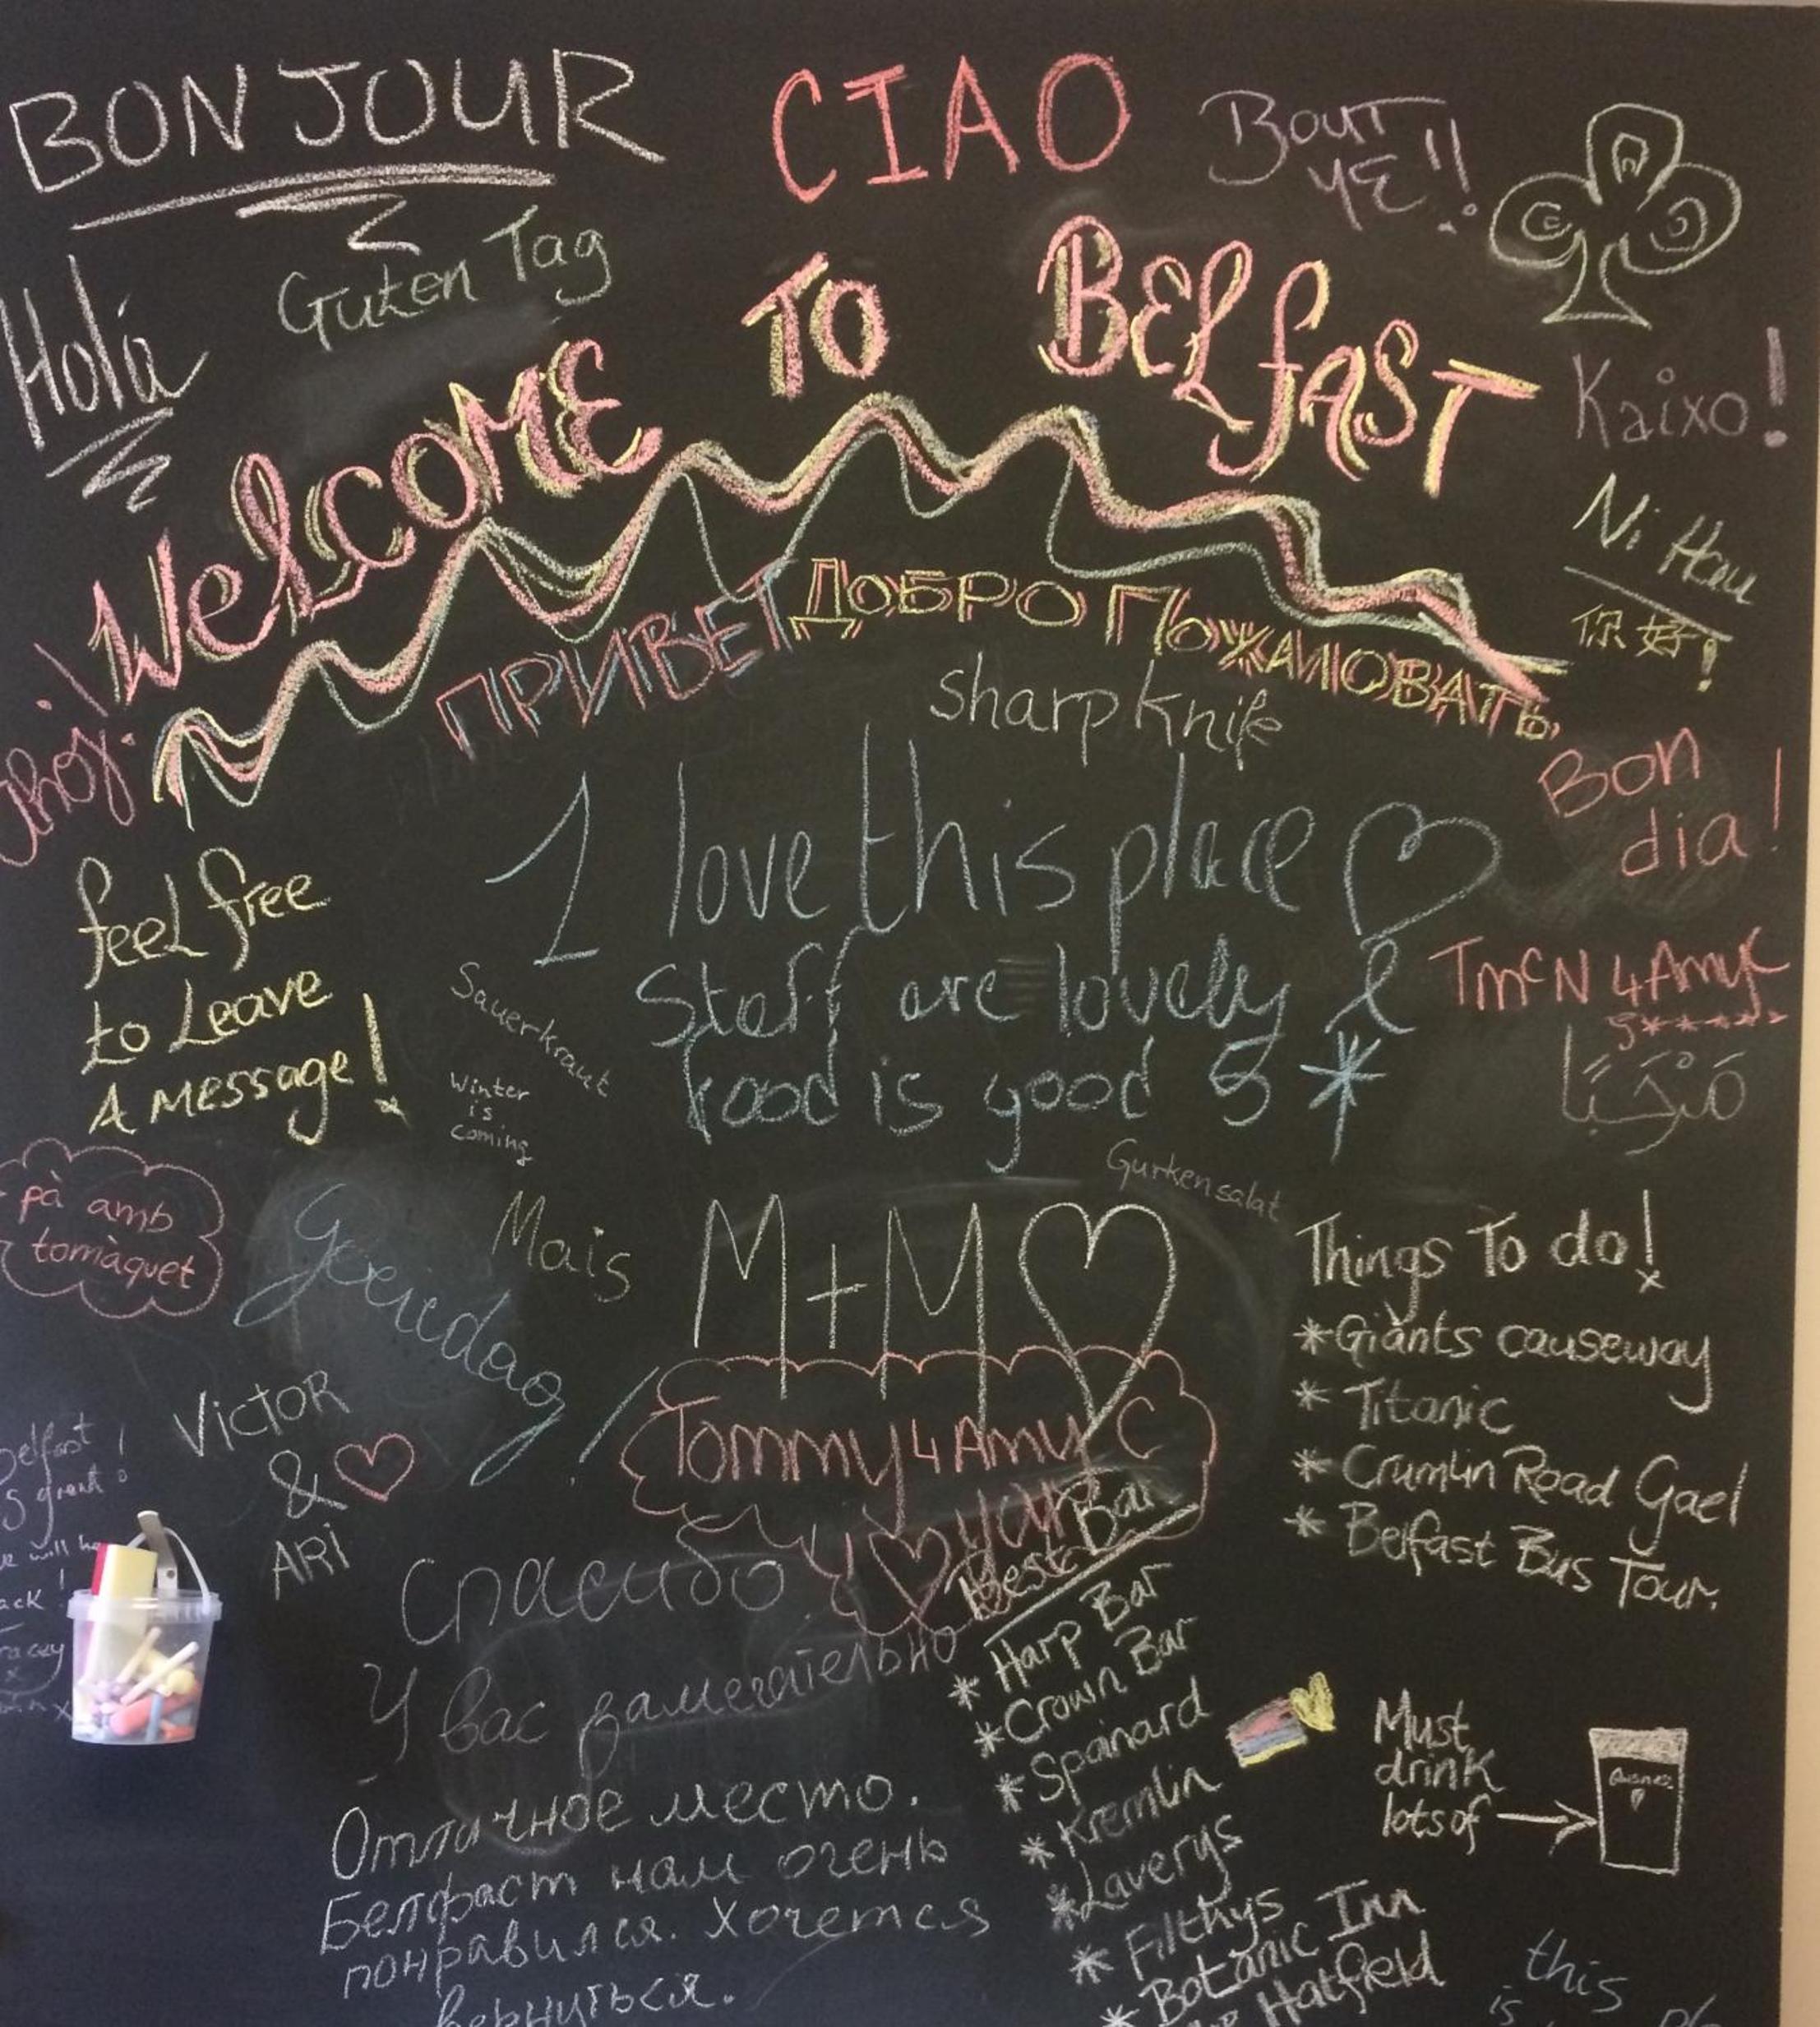 BONJOUR
CIAO
BOUT
YE!!
Guten Tag
Hola
WelCOME TO BElfAST
Kaixo!
Ni Hau
你好!
ПРИВЕТ ДОБРО ПОЖАЛОВАТЬ
Ahoj!
sharp knife
Bon
dia!
I love this place
Staff are lovely &
food is good 5 *
feel free
to Leave
A Message!
TMcN 4 Amy C
5*****
مَرْحَبًا
Sauerkraut
Winter
is
coming
Gurkensalat
pà amb
tomàquet
Goeiedag!
Mais
M+M
Things To do!
*Giants causeway
* Titanic
* Crumlin Road Gael
* Belfast Bus Tour.
VICTOR
&
ARi
Tommy 4 Amy C
Belfast
is great!
Best Bar
* Harp Bar
* Crown Bar
* Spainard
* Kremlin
* Laverys
* Filthys
* Botanic Inn
Hatfield
Спасибо
У вас замечательно
Отличное место.
Белфаст нам очень
понравился. Хочется
вернуться.
Must
drink
lots of
this
is